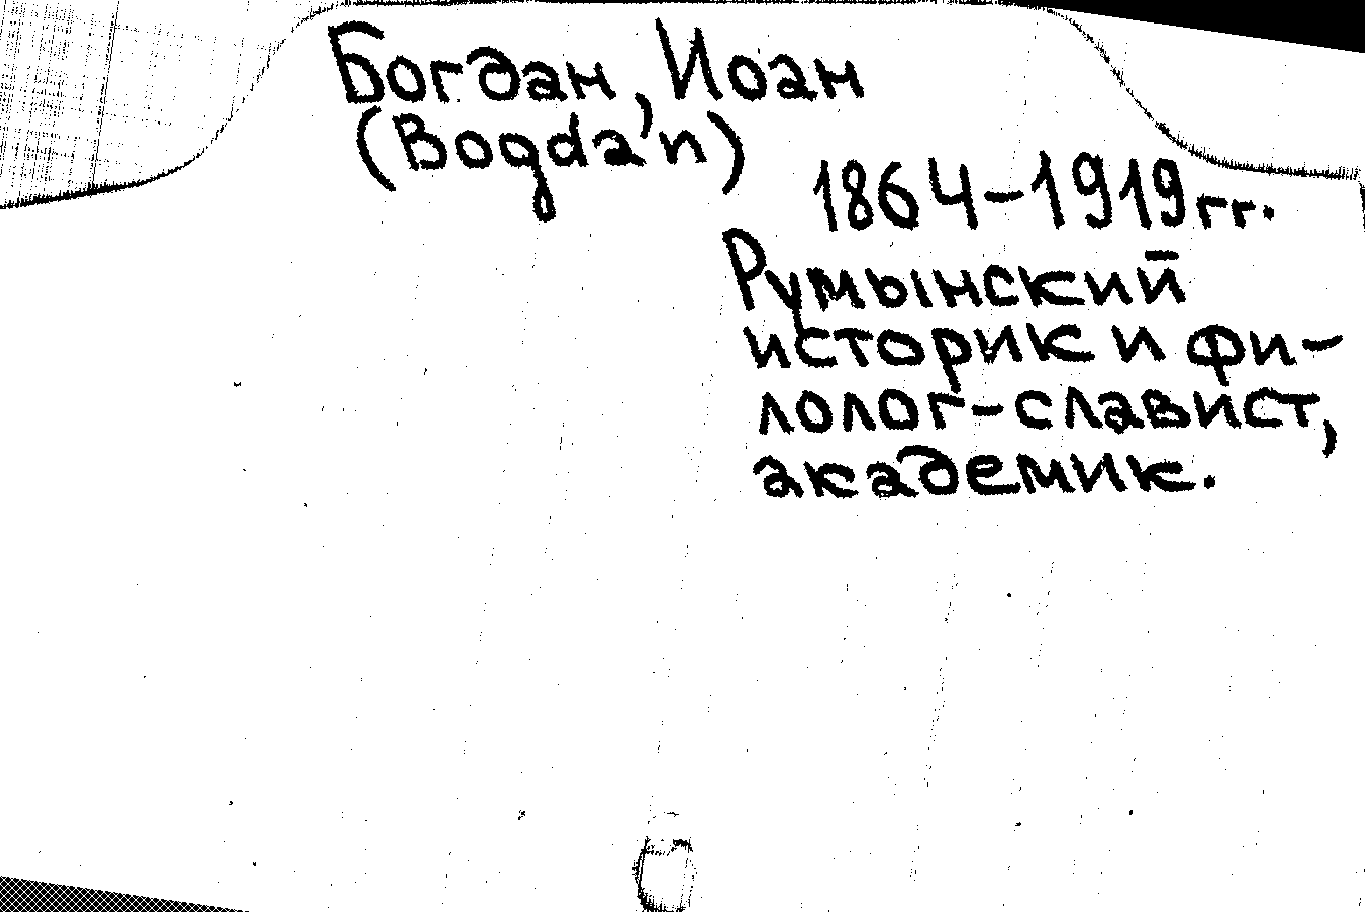 Богдан, Иоан
(Bogda'n)
1864-1919гг.
Румынский
историк и фи-
лолог-славист,
академик.